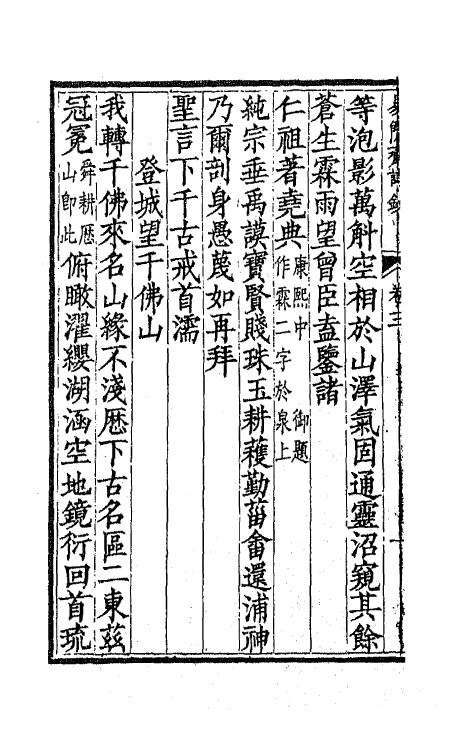 卷三
等泡影萬斛空相於山澤氣固通靈沼窺其餘
蒼生霖雨望曾臣盍鑒諸
仁祖著堯典康熙中御題作霖二字於泉上
純宗垂禹謨寶賢賤珠玉耕穫勤菑畬還浦神
乃爾剖身愚蔑如再拜
聖言下千古戒首濡
登城望千佛山
我轉千佛來名山緣不淺歷下古名區二東茲
冠冕舜耕歷山即此俯瞰濯纓湖涵空地鏡衍回首琉